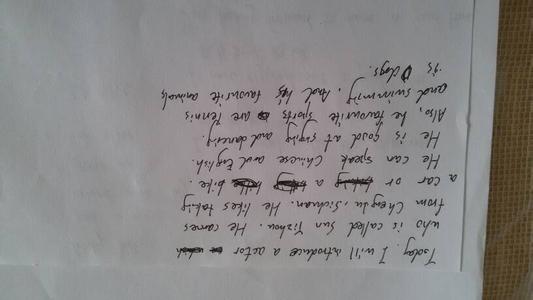 Today. I will introduce a actor
who is called Sun Yizhou. He cames
from Chengdu, Sichuan. He likes taking
a car or a bike.
He can speak Chinese and English.
He is good at singing and dancing.
Also, he favourite sports are Tennis
and swimming. And his favourite animals
is dogs.